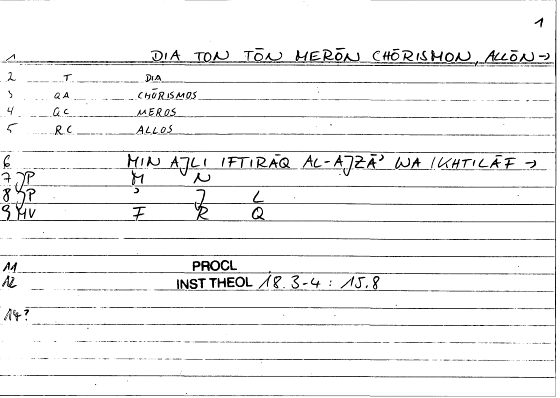 1
1 DIA TON TŌN MERŌN CHŌRISMON, ALLŌN →
2 T DIA
3 QA CHŌRISMOS
4 QC MEROS
5 RC ALLOS
6 MIN AJLI IFTIRĀQ AL-AJZĀʾ WA IKHTILĀF →
7 JP M N
8 JP ʾ J L
9 MV F R Q
11 PROCL
12 INST THEOL 18.3-4 : 15.8
14?